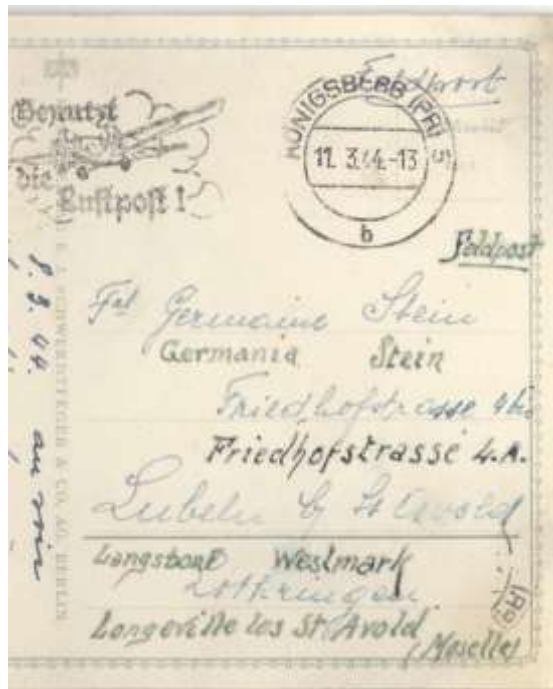 Feldpost
Benutzt
die
Luftpost!
KÖNIGSBERG (PR) 5
11.3.44.-13
b
Feldpost
Frl Germaine Stein
Germania Stein
Friedhofstrasse 4
Friedhofstrasse 4.A.
Lubeln b St Avold
Langsdorf Westmark
Lothringen
Longeville les St Avold
(Moselle)
9.3.44. an mir
SCHWERDTFEGER & CO. AG. BERLIN